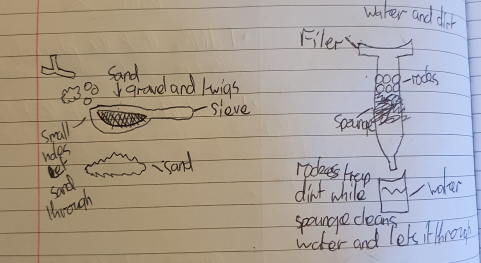 Sand
gravel and twigs
Sieve
Small
holes
let
sand
through
sand
Water and dirt
Filer
rodes
spounge
rodees trap
dirt while
spounge cleans
water and lets it through
water